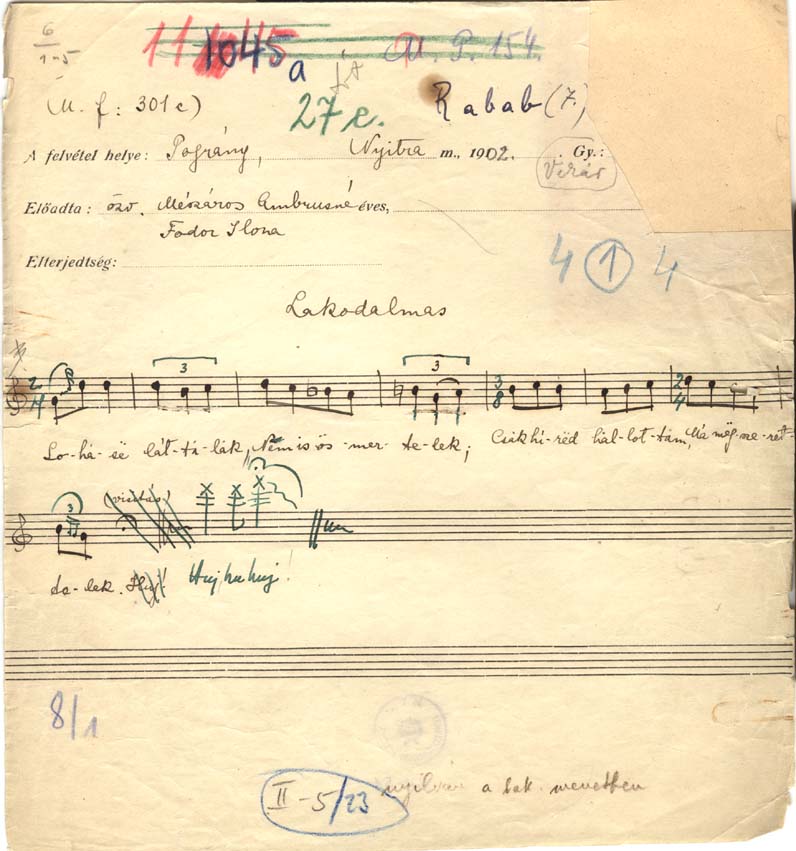 6
1-5
1045
a
M. P. 154.
(M. f: 301c)
27 e.
Rabab (7.)
A felvétel helye: Pográny, Nyitra m., 1902. Gy.:
Vikár
Előadta: özv. Mészáros Ambrusné éves,
Fodor Ilona
Elterjedtség:
4 1 4
Lakodalmas
3 3
2 4 3 8 2 4
So-há-së lát-tá-lak, Nem is ös-mer-te-lek; Csak hi-rëd hal-lot-tam, Má mëg-sze-ret-
3
(visítás)
te-lek. Huj!
Huj, hu huj!
8/1
II-5/23
nyilván a lak. menetben